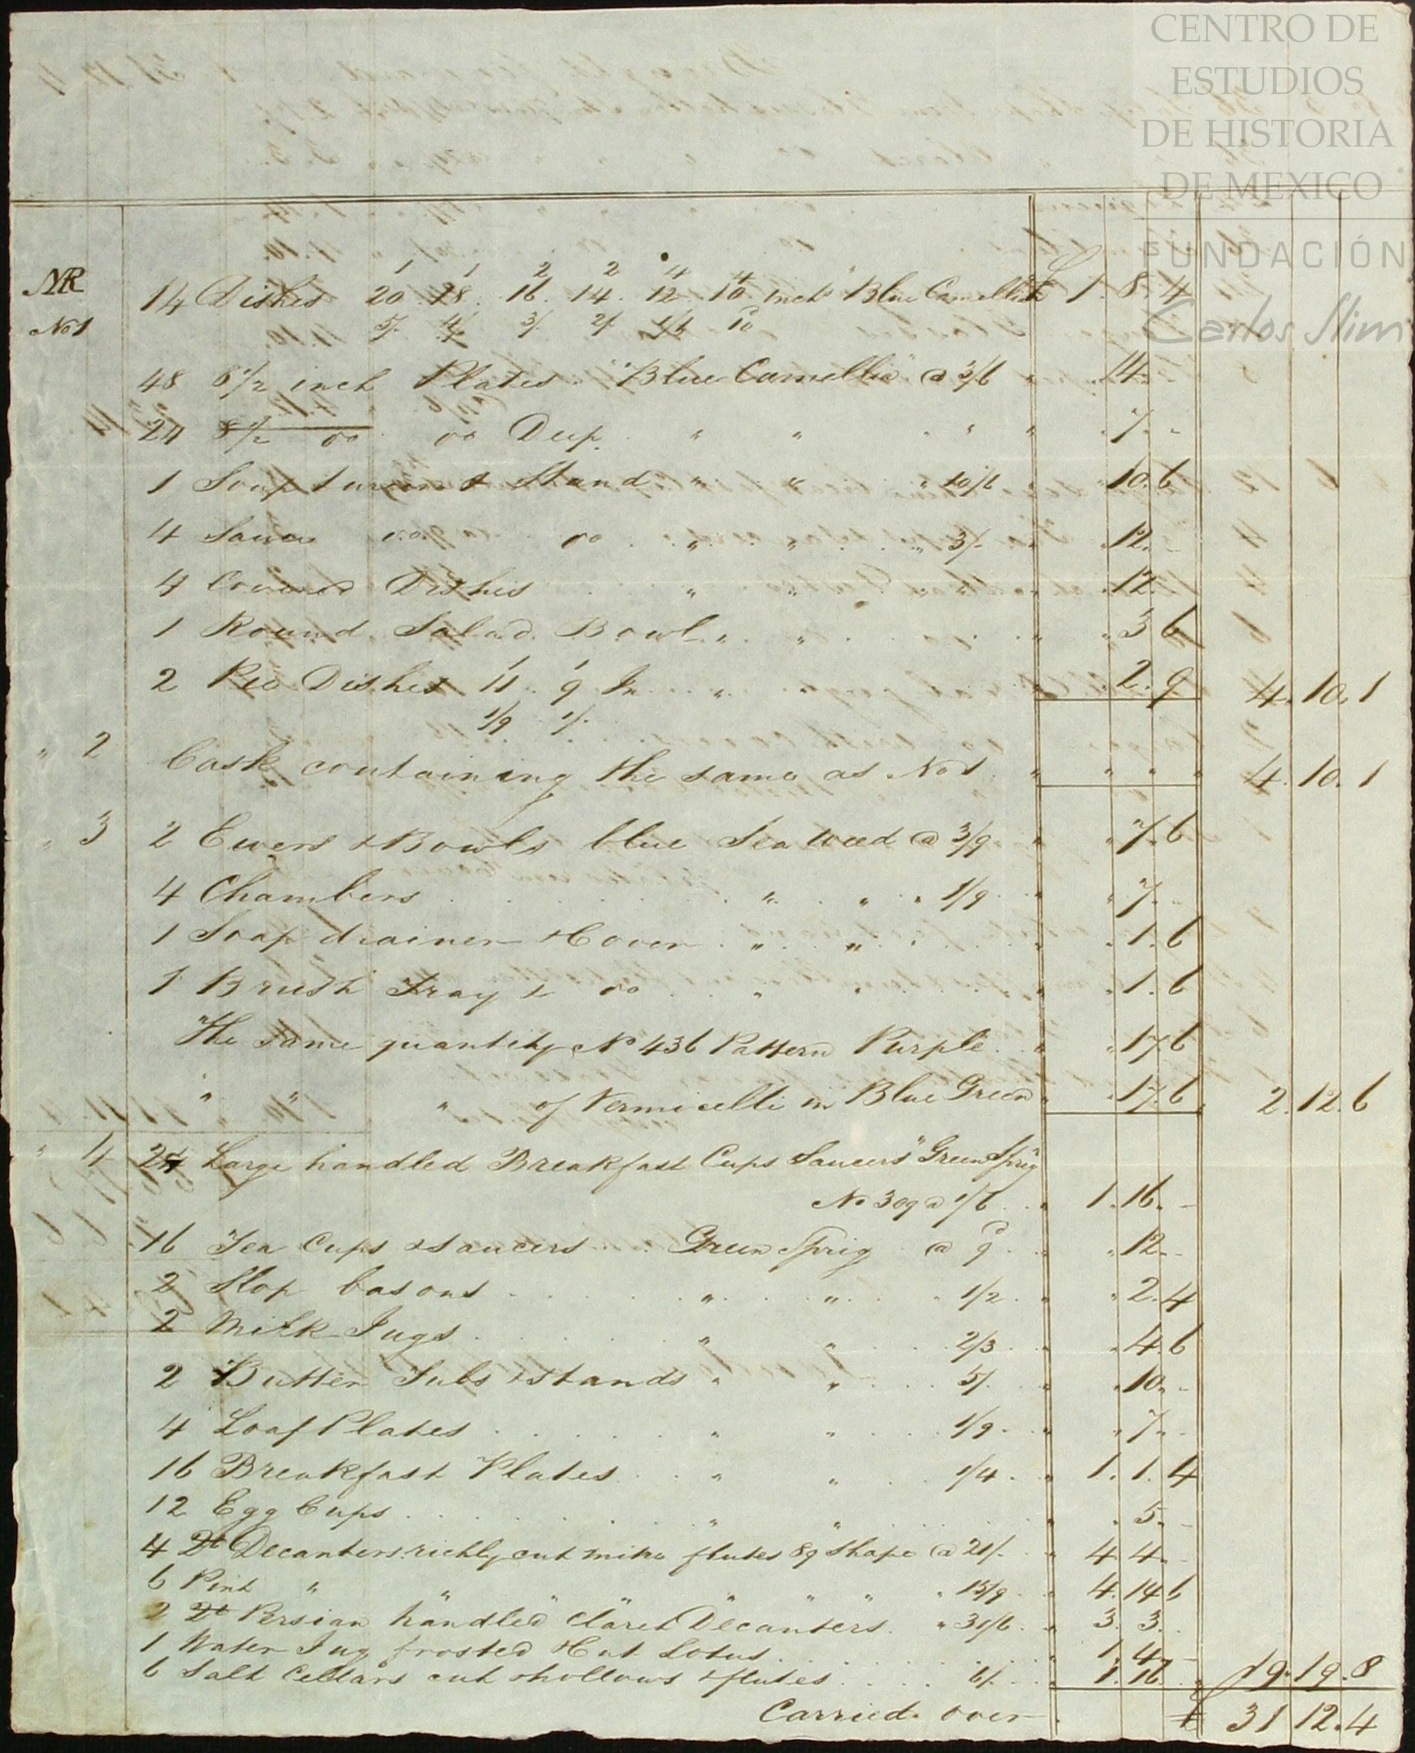 CENTRO DE
ESTUDIOS
DE HISTORIA
DE MEXICO
FUNDACIÓN
Carlos Slim
NR
No 1
1 1 2 2 4 4
14 Dishes 20. 18. 16. 14. 12. 10. inch "Blue Camellia" £ 1. 8. 4
5/. 4/. 3/. 2/. 1/6 10d
48 6 1/2 inch Plates "Blue Camellia" @ 3/6 " 14. -
24 8 1/2 do do Deep. " " " " " 7. -
1 Soup tureen & Stand " " " 10/6 " 10. 6
4 Sauce do do " " " 3/- " 12. -
4 Covered Dishes " " " 12. -
1 Round Salad Bowl " " " 3. 6
1 1
2 Pie Dishes 11. 9 In. " " 2. 9 4. 10. 1
1/9 1/.
" 2 Cask containing the same as No 1 " " " " 4. 10. 1
" 3 2 Ewers & Bowls blue Sea Weed @ 3/9 " " 7. 6
4 Chambers " " " 1/9 " " 7. -
1 Soap drainer & Cover " " " " 1. 6
1 Brush Tray & do " " " " 1. 6
The same quantity No 436 Pattern Purple " " 17. 6
" " " of Vermicelli in Blue Green " " 17. 6 2. 12. 6
" 4 24 Large handled Breakfast Cups Saucers "Green Sprig"
No 309 @ 1/6 " 1. 16. -
16 Tea Cups & Saucers Green Sprig @ 9d " " 12. -
2 Slop basons " " " 1/2 " " 2. 4
2 Milk Jugs " " 2/3 " " 4. 6
2 Butter Tubs & Stands " " 5/. " " 10. -
4 Loaf Plates " " 1/9 " " 7. -
16 Breakfast Plates " " 1/4 " 1. 1. 4
12 Egg Cups " " " " 5. -
4 Qt Decanters richly cut mitre flutes 89 Shape @ 21/- " 4. 4. -
6 Pint " " " " " " 15/9 " 4. 14. 6
2 Qt Persian handled Claret Decanters " 31/6 " 3. 3.
1 Water Jug frosted & Cut Lotus " 1. 4. -
6 Salt Cellars cut hollows & flutes 6/- " 1. 16 " 19. 19. 8
Carried over £ 31. 12. 4